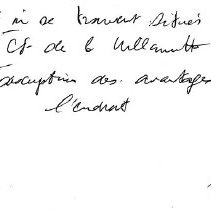 où se trouvent situés
Cf de la Willamette
description des avantages
l'endroit